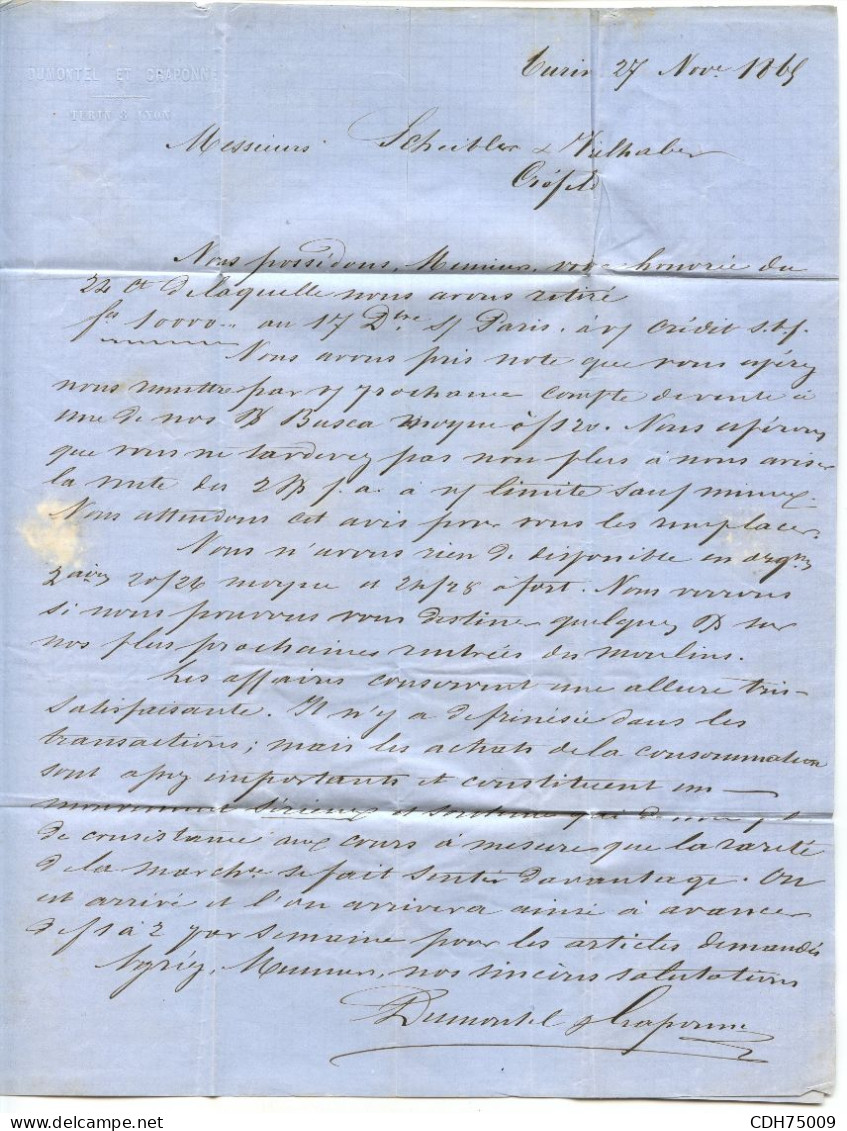 DUMONTEL ET CRAPONNE
TURIN & LYON
Turin 27 Nov.e 1865
Messieurs Scheibler & Vielhaber
Créfeld
Nous possédons, Messieurs, votre honorée du
22 ct de laquelle nous avons retiré
fcs 10000.- au 17 Dbre s/ Paris. à v/ crédit s.b.f.
Nous avons pris note que vous espérez
nous remettre par v/ prochaine compte de vente à
une de nos Bs Busca moyne à f 120. Nous espérons
que vous ne tarderez pas non plus à nous aviser
la vente des 2 Bs f.a. à n/ limite sauf mieux.
Nous attendons cet avis pour vous les remplacer.
Nous n'avons rien de disponible en organs
20/26 moyne et 24/28 à fort. Nous verrons
si nous pouvons vous destiner quelques Bs sur
nos plus prochaines rentrées des moulins.
Les affaires conservent une allure très-
satisfaisante. Il n'y a de frénésie dans les
transactions; mais les achats de la consommation
sont assez importants et constituent un
mouvement sérieux et soutenu qui donne
de consistance aux cours à mesure que la rareté
de la marchse se fait sentir davantage. On
est arrivé et l'on arrivera ainsi à avancer
de f 1 à 2 par semaine pour les articles demandés
Agréez, Messieurs, nos sincères salutations
Dumontel & Craponne
CDH75009